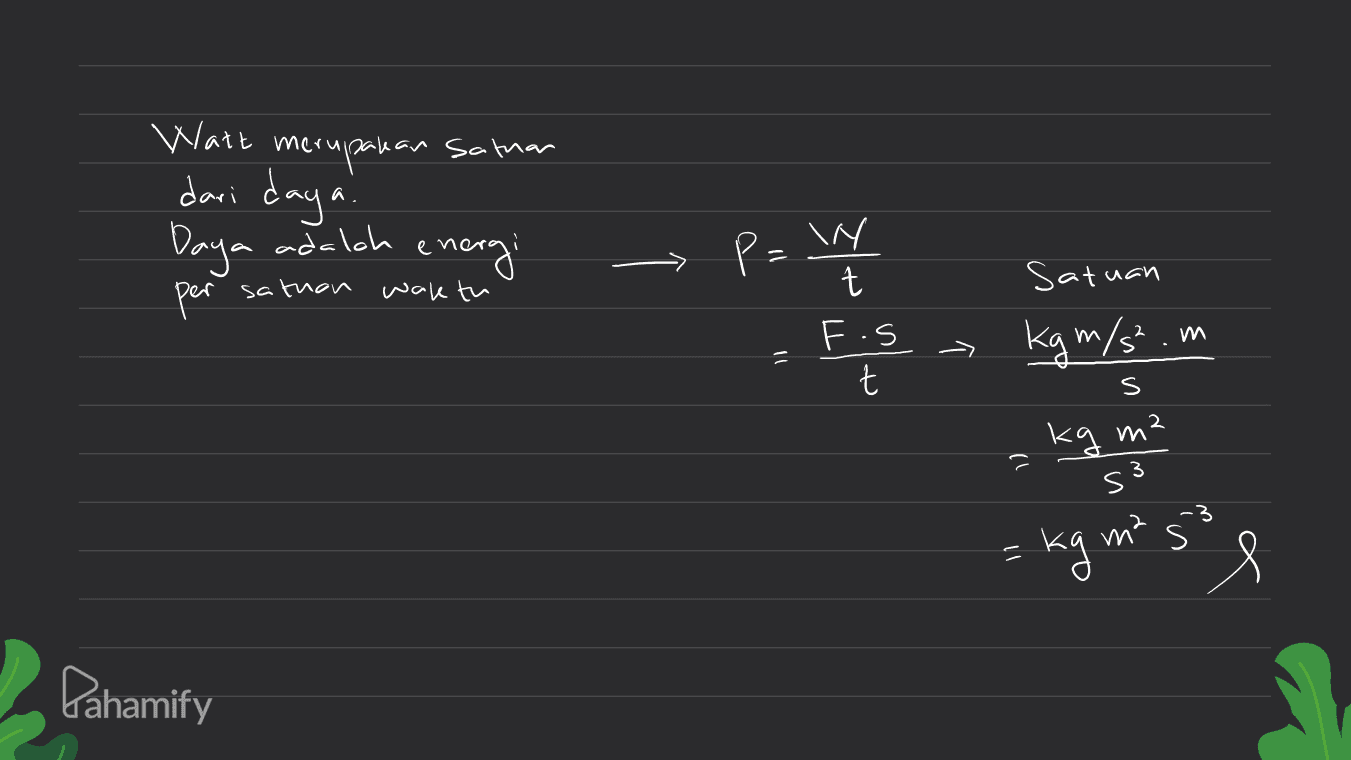 Watt merupakan satuan
dari daya.
Daya adalah energi
per satuan waktu
→ P = W/t
Satuan
= F.s/t → kg m/s² . m / s
= kg m²/s³
= kg m² s⁻³
Pahamify